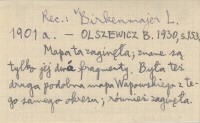 Rec.: Birkenmajer L.
1901 a. — OLSZEWICZ B. 1930, s. 153.
Mapa ta zaginęła; znane są
tylko jej dwa fragmenty. Była też
druga podobna mapa Wapowskiego z te-
go samego okresu; również zaginęła.